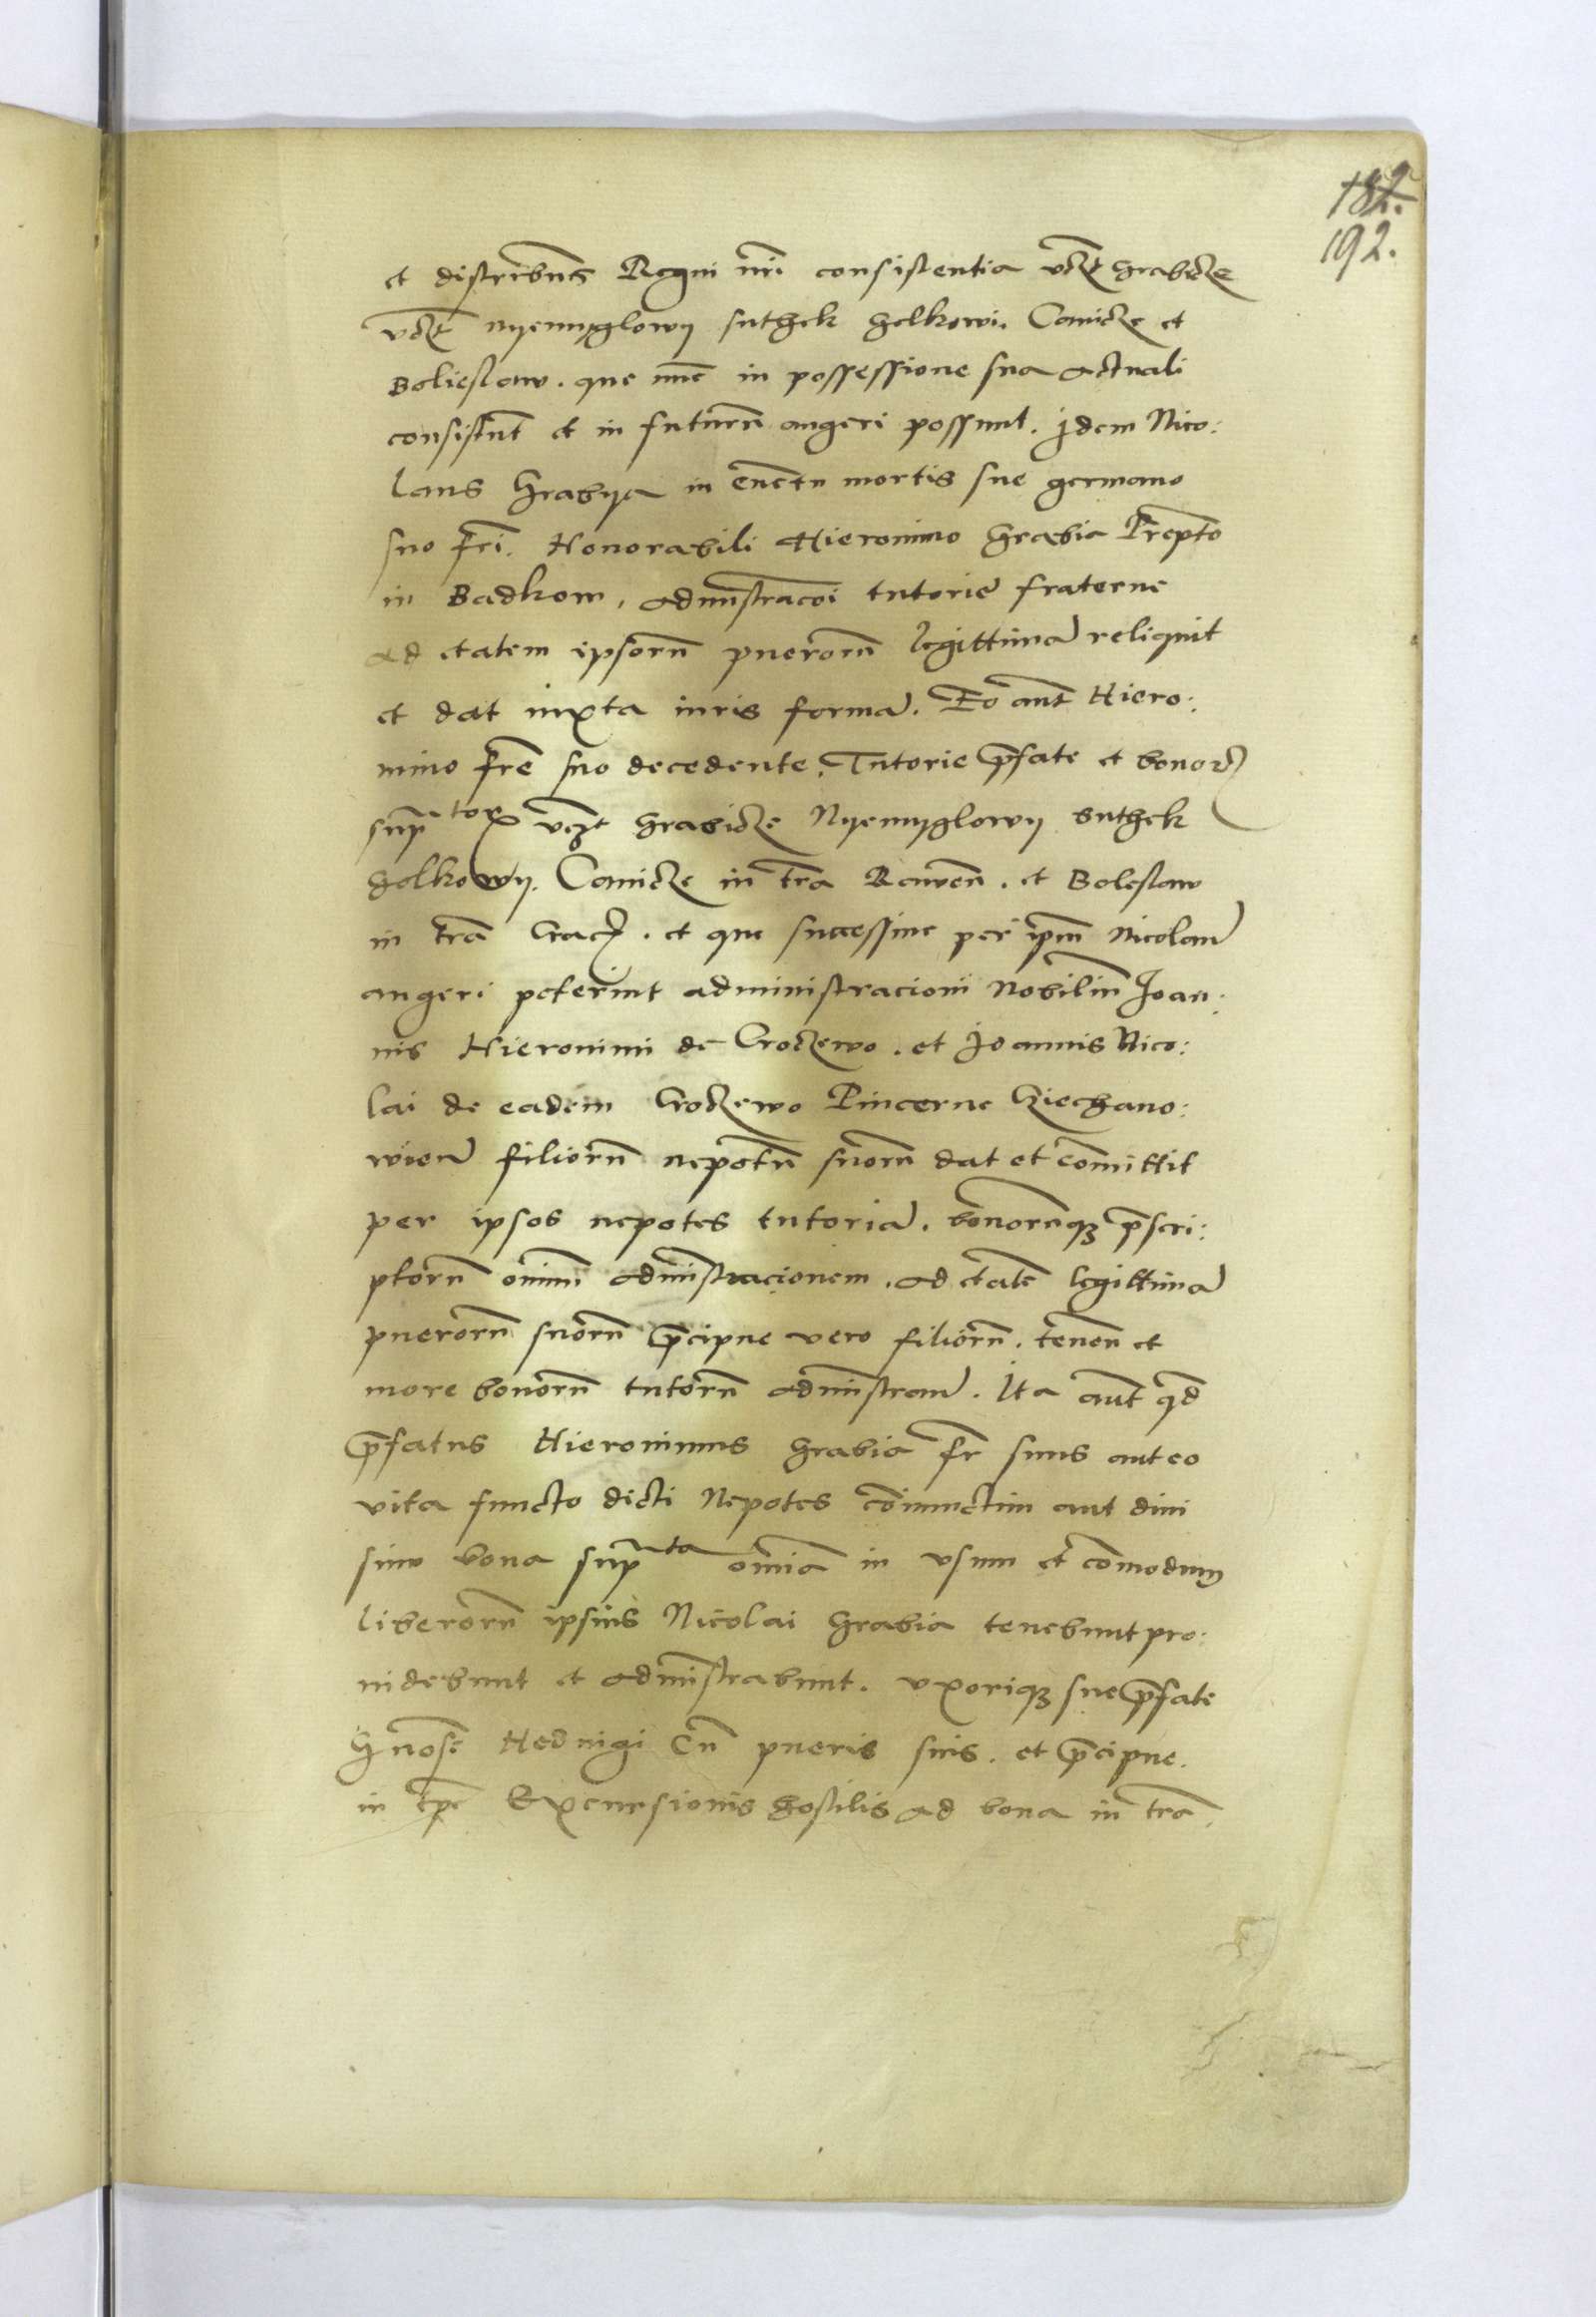 182.
192.
et districtibus Regni nri consistentia vdzt Grabicze
vdzt nyemyglowy suthek golkowi. Canicze et
Boliestaw. que nunc in possessione sua actuali
consistunt et in futurum augeri possunt. Idem Nico:
laus Grabya in euentu mortis sue germano
suo fri. Honorabili Hieronimo Grabia Prepto
in Badkow, administracoi tutorie fraterne
ad etatem ipsorum puerorum legittimam reliquit
et dat iuxta iuris formam. Eo aut Hiero:
nimo fre suo decedente. Tutorie pfate et bonorum
suptor vczt Grabicze Nyemyglowy Suthek
golkowy. Canicze in tra Rawen. et Bolestaw
in tra Crac. et que successiue per ipm Nicolaum
augeri poterint administracioni Nobilium Joan:
nis Hieronimi de Croczewo. et Joannis Nico:
lai de eadem Croczewo Pincerne Cziechano:
wien filiorum nepotum suorum dat et comittit
per ipsos nepotes tutoriam. bonorumq pscri:
ptorum omnium administracionem. ad etatem legittimam
puerorum suorum pcipue vero filiorum. tenen et
more bonorum tutorum administran. Ita aut qd
pfatus Hieronimus Grabia fr suus aut eo
vita functo dicti Nepotes coniunctim aut diui
sim bona supta omnia in vsum et comodum
liberorum ipsius Nicolai Grabia tenebunt pro:
uidebunt et administrabunt. vxoriq sue pfate
Gnose Heduigi cum pueris suis. et pcipue.
in tpe Excursionis hostilis ad bona in tra.